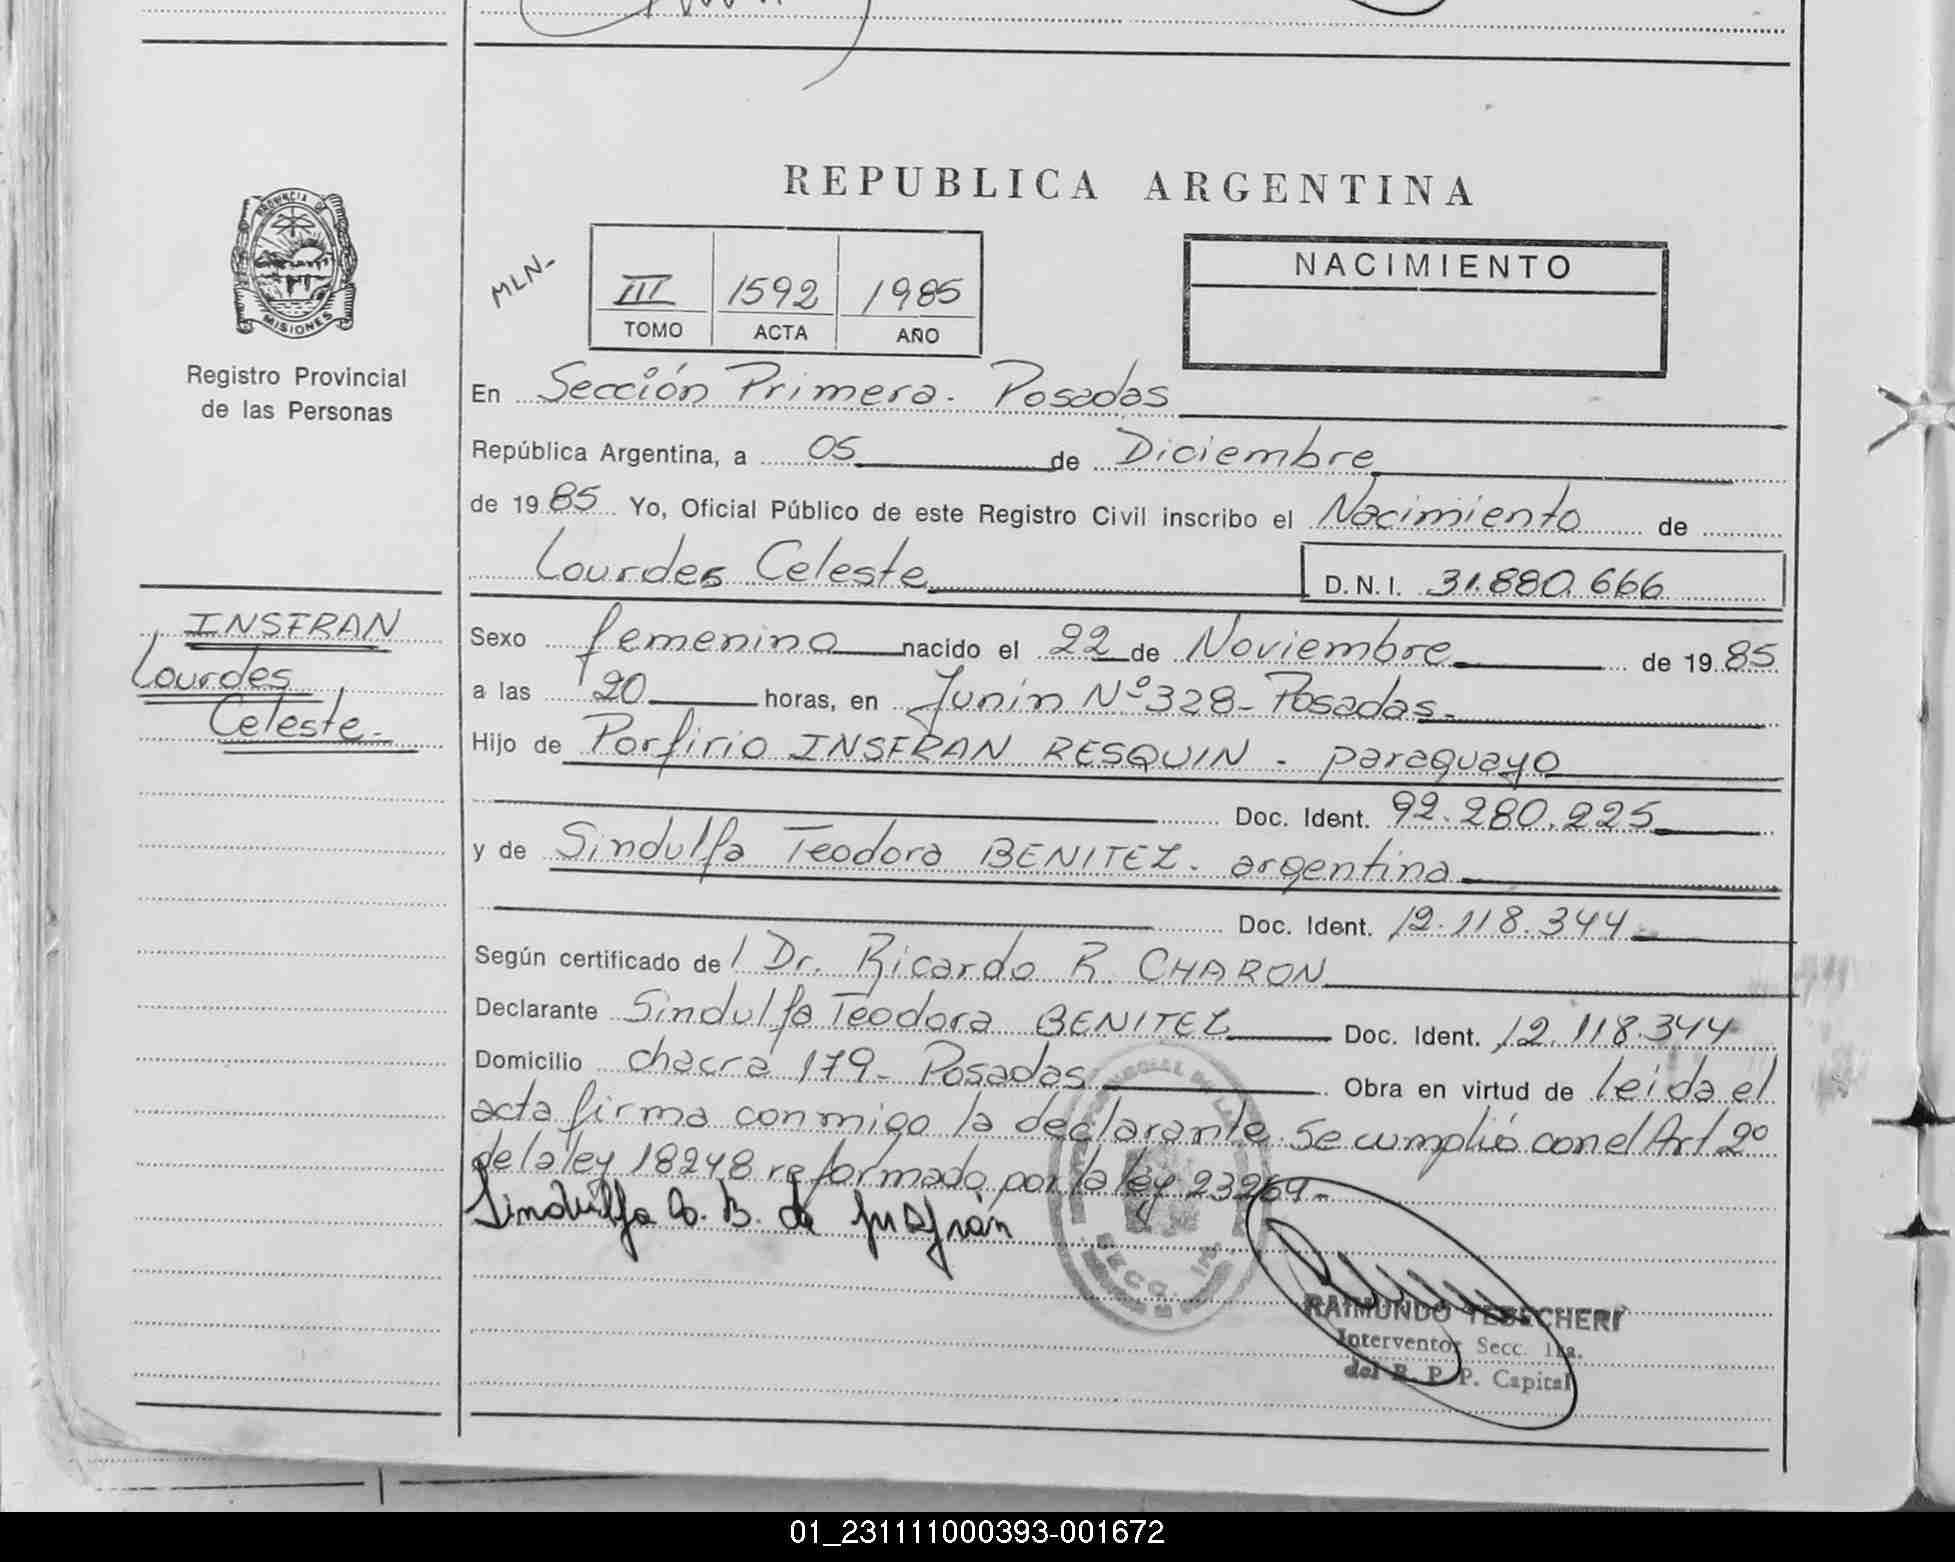 REPUBLICA ARGENTINA
PROVINCIA DE
MISIONES
Registro Provincial
de las Personas
MLN-
III 1592 1985
TOMO ACTA AÑO
NACIMIENTO
En Sección Primera. Posadas
República Argentina, a 05 de Diciembre
de 1985 Yo, Oficial Público de este Registro Civil inscribo el Nacimiento de
Lourdes Celeste D.N.I. 31.880.666
INSFRAN
Lourdes
Celeste.-
Sexo femenino nacido el 22 de Noviembre de 1985
a las 20 horas, en Junín Nº 328- Posadas.-
Hijo de Porfirio INSFRAN RESQUIN - paraguayo
Doc. Ident. 92.280.225
y de Sindulfa Teodora BENITEZ. argentina
Doc. Ident. 12.118.344
Según certificado de l Dr. Ricardo R. CHARON
Declarante Sindulfa Teodora BENITEZ Doc. Ident. 12.118.344
Domicilio chacra 179- Posadas Obra en virtud de leida el
acta firma conmigo la declarante. Se cumplió con el Art 2º
de la ley 18248 reformado por la ley 23264-
Sindulfa B. de Insfrán
SECC. 1ra.
RAIMUNDO TEBECHERI
Interventor Secc. 1ra.
del R. P. P. Capital
01_231111000393-001672